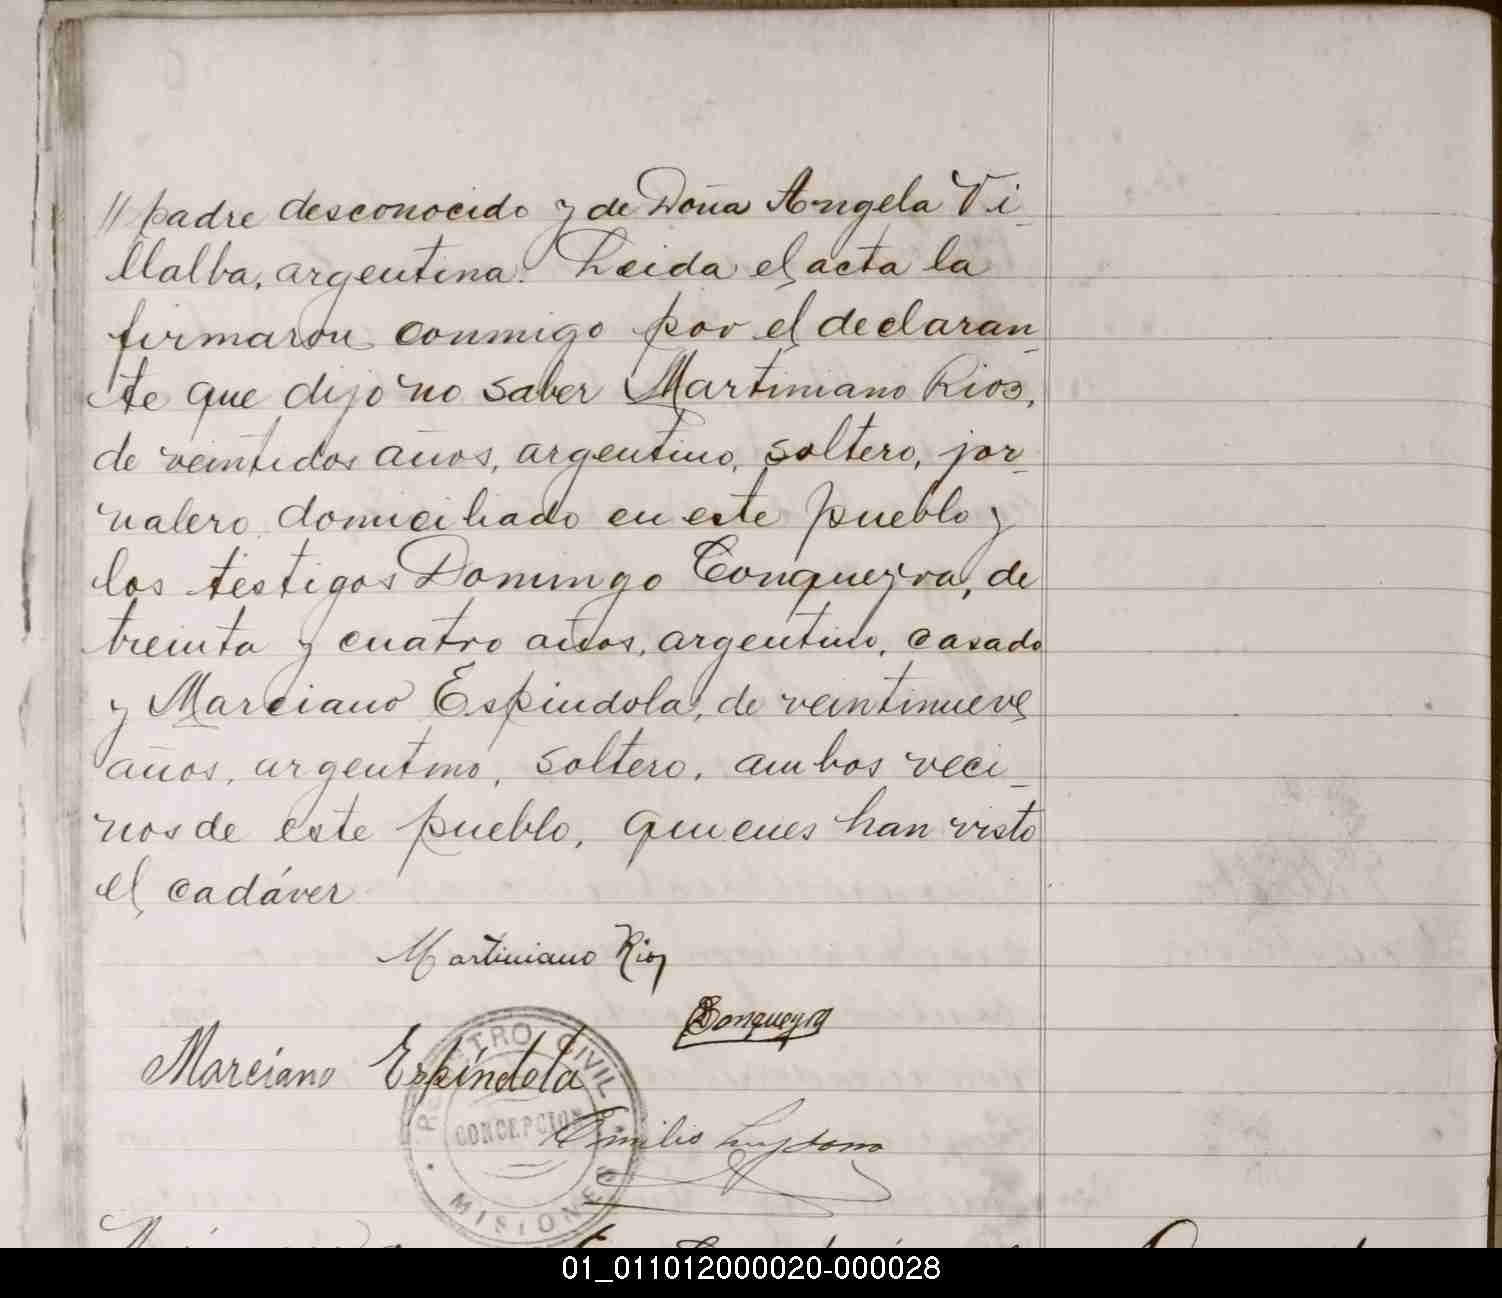 // padre desconocido y de Doña Angela Vi_
llalba, argentina. Leida el acta la
firmaron conmigo por el declaran_
te que dijo no saber Martiniano Rios,
de veintidos años, argentino, soltero, jor_
nalero domiciliado en este pueblo y
los testigos Domingo Conqueyra, de
treinta y cuatro años, argentino, casado
y Marciano Espindola, de veintinueve
años, argentino, soltero, ambos veci_
nos de este pueblo, quienes han visto
el cadáver
Martiniano Rios
DConqueyra
Marciano Espíndola
REGISTRO CIVIL
CONCEPCION
MISIONES
Emilio
01_011012000020-000028